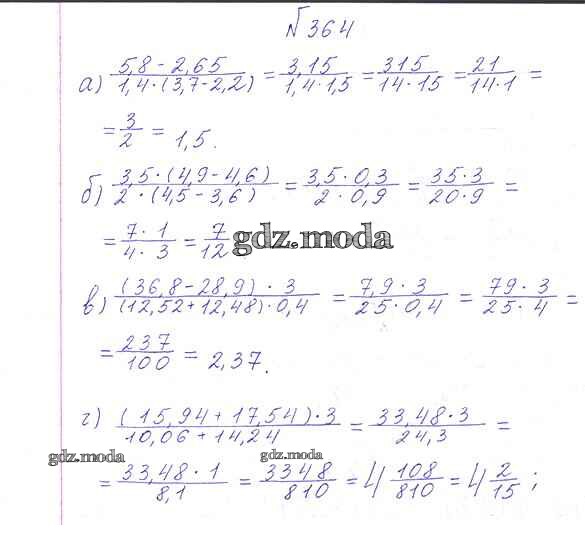 №364
а) (5,8 - 2,65)/(1,4·(3,7-2,2)) = 3,15/(1,4·1,5) = 315/(14·15) = 21/(14·1) =
= 3/2 = 1,5.
б) (3,5·(4,9-4,6))/(2·(4,5-3,6)) = (3,5·0,3)/(2·0,9) = (35·3)/(20·9) =
= (7·1)/(4·3) = 7/12
gdz.moda
в) ((36,8-28,9)·3)/((12,52+12,48)·0,4) = (7,9·3)/(25·0,4) = (79·3)/(25·4) =
= 237/100 = 2,37.
г) ((15,94+17,54)·3)/(10,06+14,24) = (33,48·3)/24,3 =
gdz.moda gdz.moda
= (33,48·1)/8,1 = 3348/810 = 4 108/810 = 4 2/15;